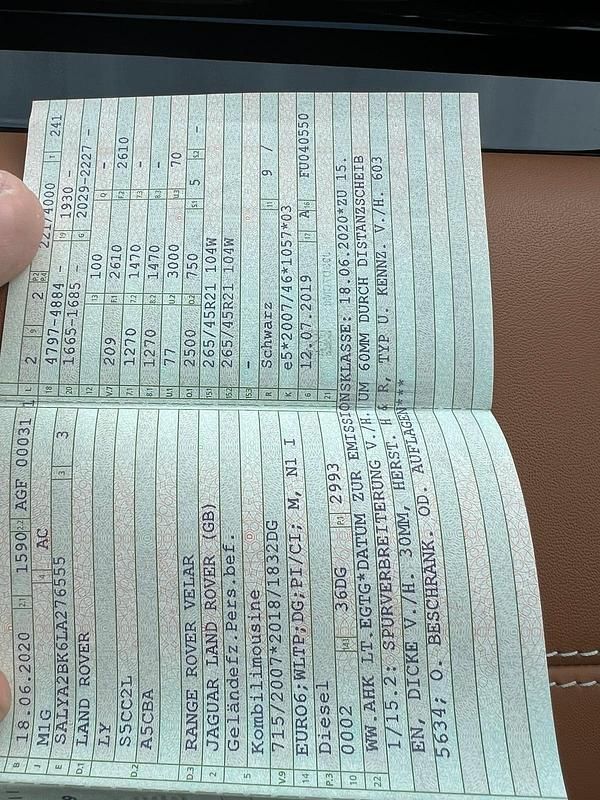 B 18.06.2020 2.1 1590 2.2 AGF 00031 1
J M1G 4 AC
E SALYA2BK6LA276555 3 3
D.1 LAND ROVER
LY
D.2 S5CC2L
A5CBA
D.3 RANGE ROVER VELAR
2 JAGUAR LAND ROVER (GB)
Geländefz.Pers.bef.
5 Kombilimousine
V.9 715/2007*2018/1832DG
14 EURO6;WLTP;DG;PI/CI; M, N1 I
P.3 Diesel
10 0002 14.1 36DG P.1 2993
L 2 9 2 P.2 P.4 221/4000 T 241
18 4797-4884 - 19 1930 -
20 1665-1685 - G 2029-2227 -
12 13 100 Q -
V.7 209 F.1 2610 F.2 2610
7.1 1270 7.2 1470 7.3 -
8.1 1270 8.2 1470 8.3 -
U.1 77 U.2 3000 U.3 70
O.1 2500 O.2 750 S.1 5 S.2 -
15.1 265/45R21 104W
15.2 265/45R21 104W
15.3 -
R Schwarz 11 9 /
K e5*2007/46*1057*03
6 12.07.2019 17 A 16 FU040550
21
22 WW.AHK LT.EGTG*DATUM ZUR EMISSIONSKLASSE: 18.06.2020*ZU 15.
1/15.2: SPURVERBREITERUNG V./H. UM 60MM DURCH DISTANZSCHEIB
EN, DICKE V./H. 30MM, HERST. H & R, TYP U. KENNZ. V./H. 603
5634; O. BESCHRANK. OD. AUFLAGEN***